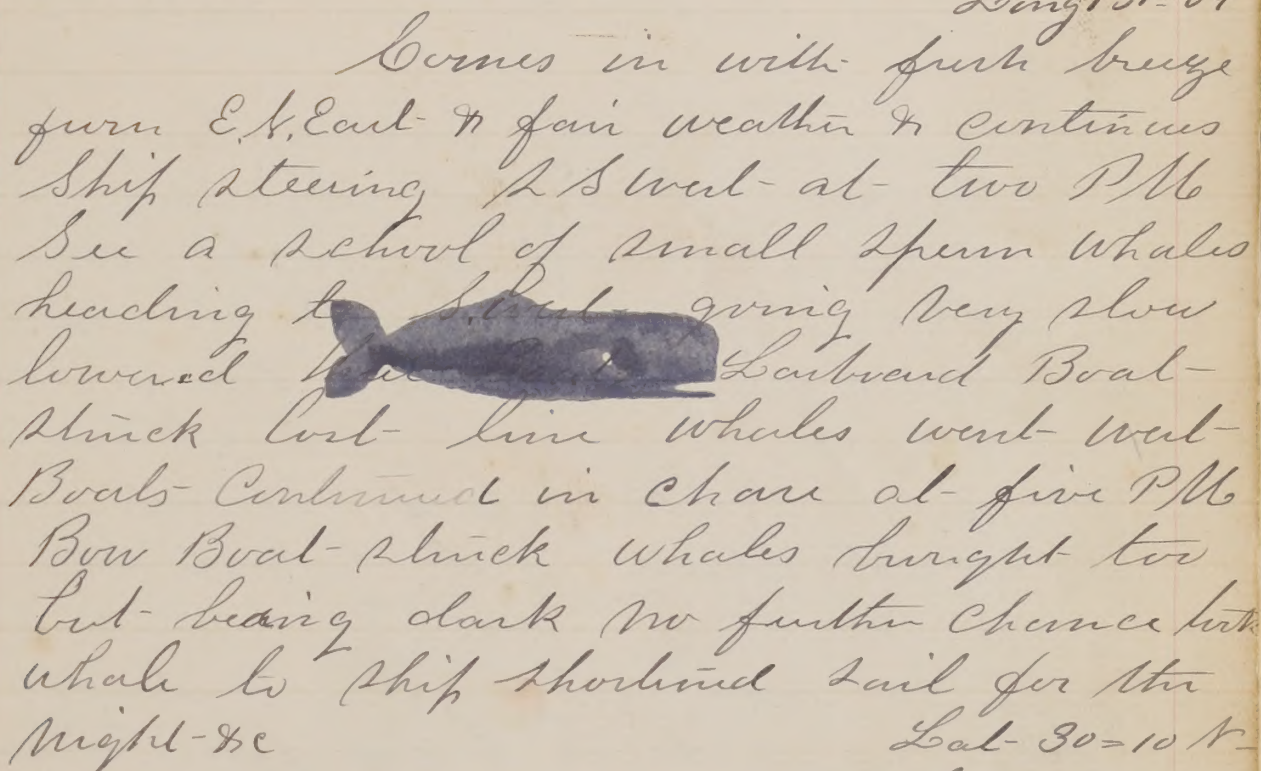 Comes in with fresh breeze
from E.N.East & fair weather & continues
Ship steering S S West at two PM
See a school of small sperm whales
heading to S.West going very slow
lowered Larboard Boat
struck lost line whales went west
Boats Continued in chase at five PM
Bow Boat struck whales brought too
but being dark no further chance took
whale to ship shortened sail for the
night &c
Lat 30=10 N